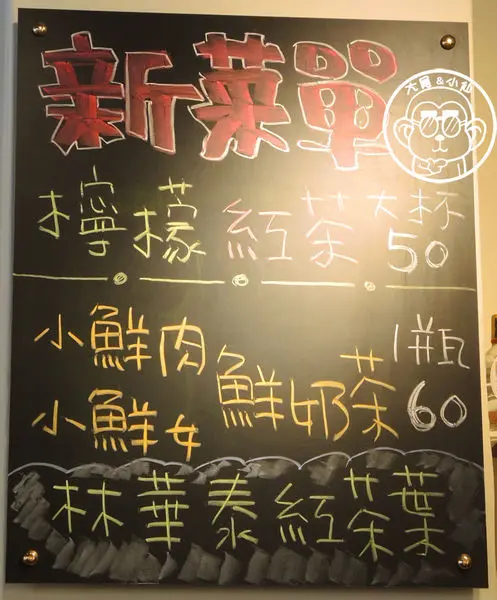 新菜單
大尾&小尬
檸檬紅茶 大杯 50
小鮮肉
小鮮女
鮮奶茶
1瓶 60
林華泰紅茶葉